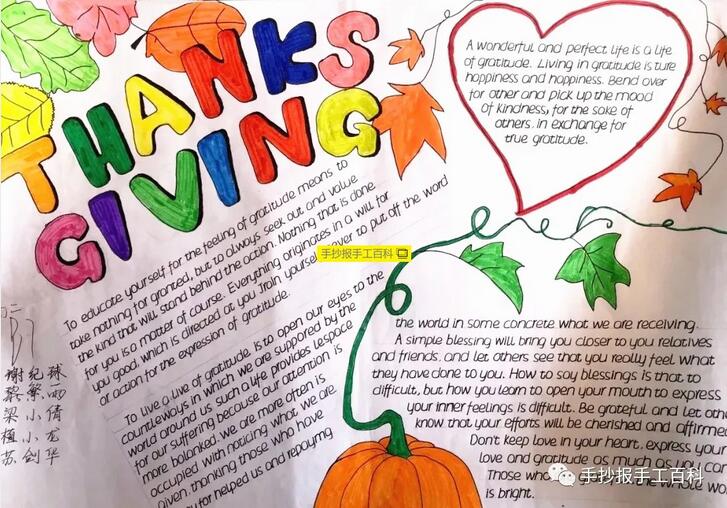 THANKS
GIVING
A wonderful and perfect life is a life
of gratitude. Living in gratitude is ture
happiness and happiness. Bend over
for other and pick up the mood
of kindness, for the sake of
others, in exchange for
true gratitude.
To educate yourself for the feeling of gratitude means to
take nothing for granted, but to always seek out and value
the kind that will stand behind the action. Nothing that is done
for you is a matter of course. Everything originates in a will for
you good, which is directed at you. Train yourself never to put off the word
or action for the expression of gratitude.
手抄报手工百科
To live a live of gratitude is to open our eyes to the
countleways in which we are supported by the
world around us. Such a life provides lespace
for our suffering because our attention is
more balanked. we are more often is
occupied with noticing what we are
given, thanking those who have
for helped us and repaying
the world in some concrete what we are receiving.
A simple blessing will bring you closer to you relatives
and friends, and let others see that you really feel what
they have done to you. How to say blessings is that to
difficult, but how you learn to open your mouth to express
your inner feelings is difficult. Be grateful and let oth
know that your efforts will be cherished and affirmed
Don't keep love in your heart, express your
love and gratitude as much as you can
Those who the whole wo
is bright.
梁小倩
植小龙
苏剑华
手抄报手工百科